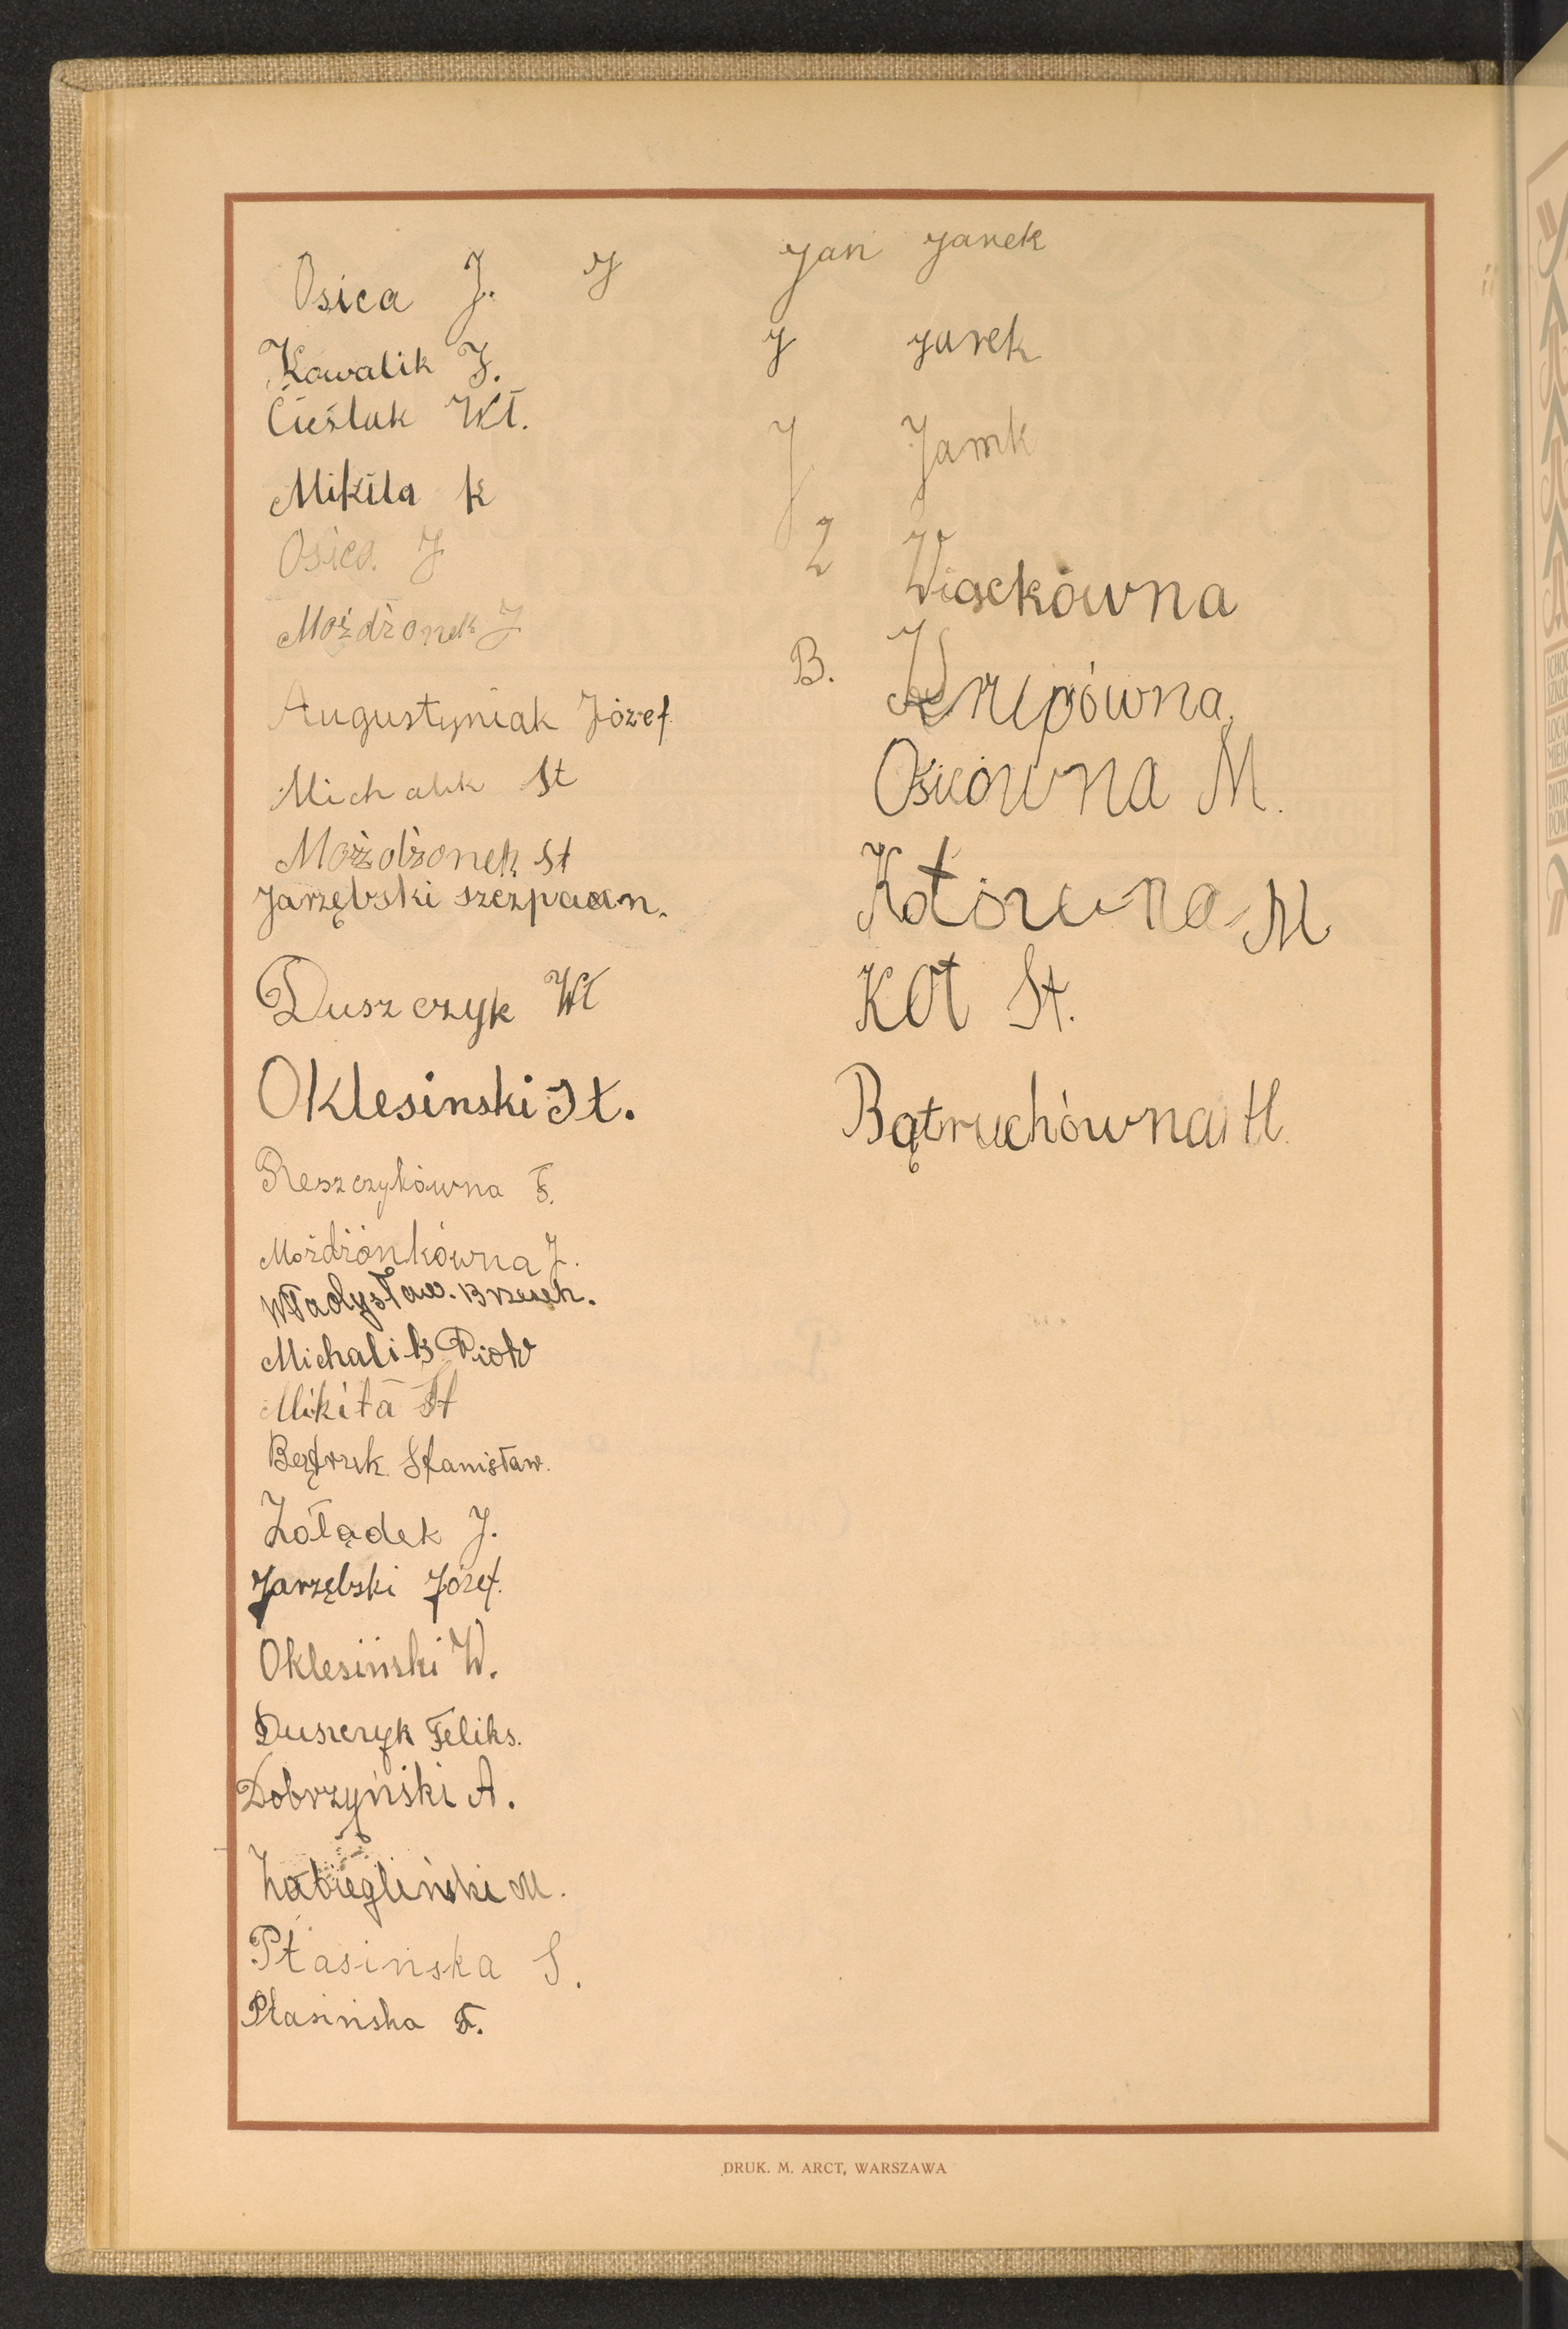 Osica J.
Kowalik J.
Cieślak Wł.
Mikiła K
Osica J
Możdżonek J
Augustyniak Józef.
Michalik St
Możdżonek St
Jarzębski szczpaan.
Duszczyk Wł
Oklesinski St.
Reszczykówna F.
Możdżonkówna J.
Władysław. Brzezek.
Michalik Piotr
Mikita St
Bądruk Stanisław.
Żołądek J.
Jarzębski Józef.
Oklesiński W.
Duszczyk Feliks.
Dobrzyński A.
Żabiegliński M.
Ptasińska S.
Ptasińska F.
J Jan Janek
J Janek
J Janek
Z Wiąckówna
B. Krupówna
Osicówna M.
Kotówna M
Kot St.
Bątruchówna H.
DRUK. M. ARCT, WARSZAWA